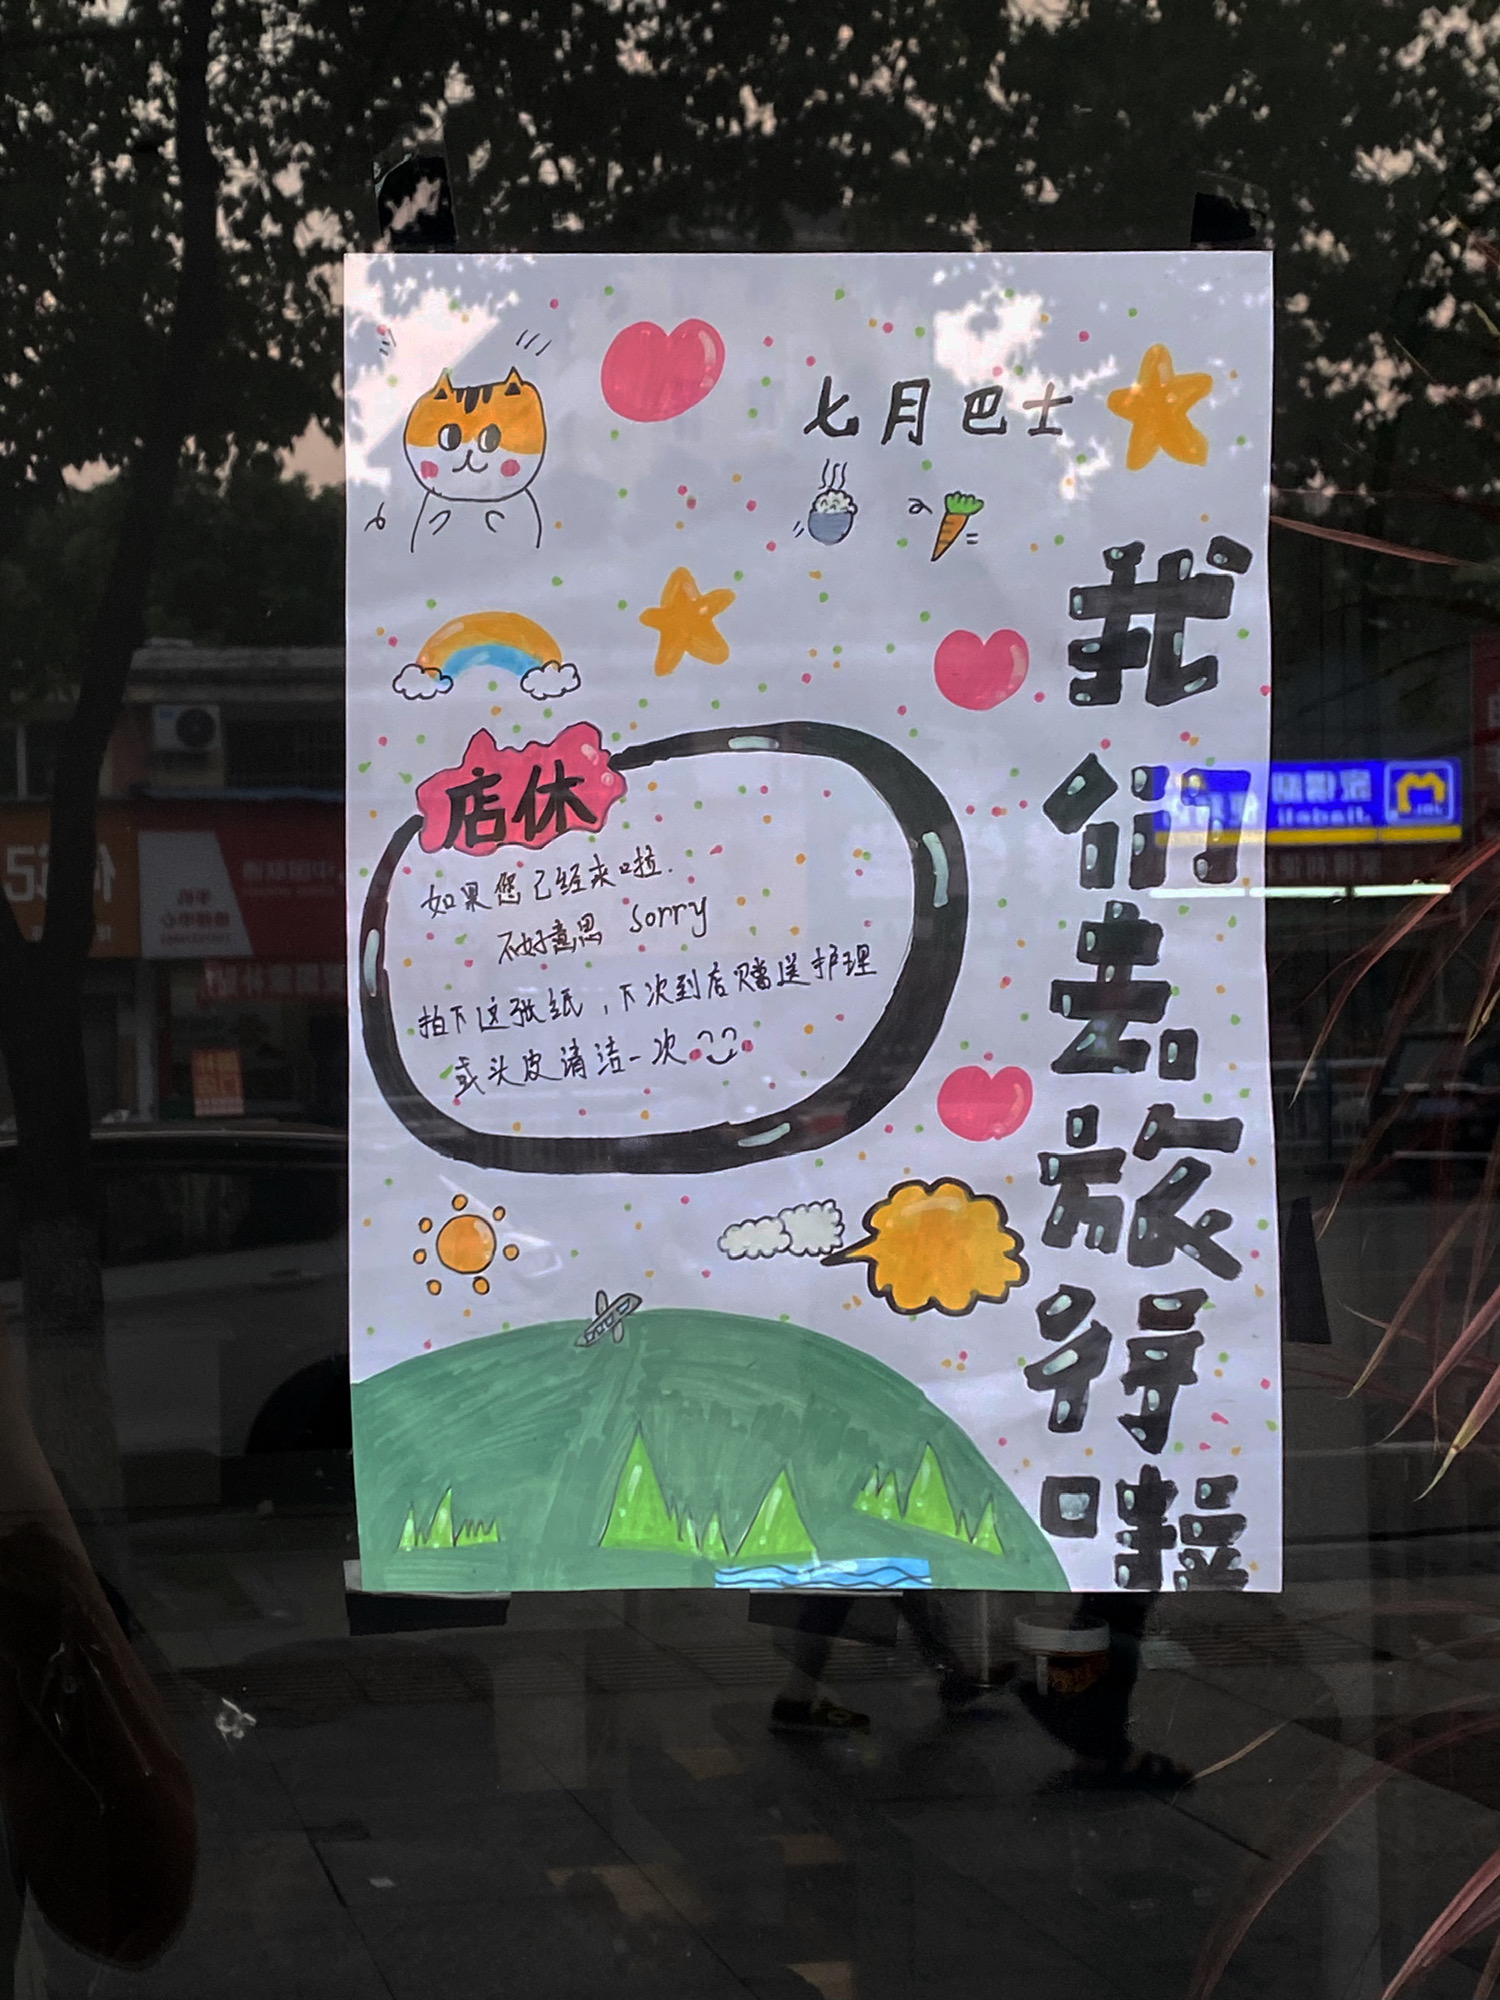 七月巴士
我们去旅行啦
店休
如果您已经来啦.
不好意思 Sorry
拍下这张纸,下次到店赠送护理
或头皮清洁一次